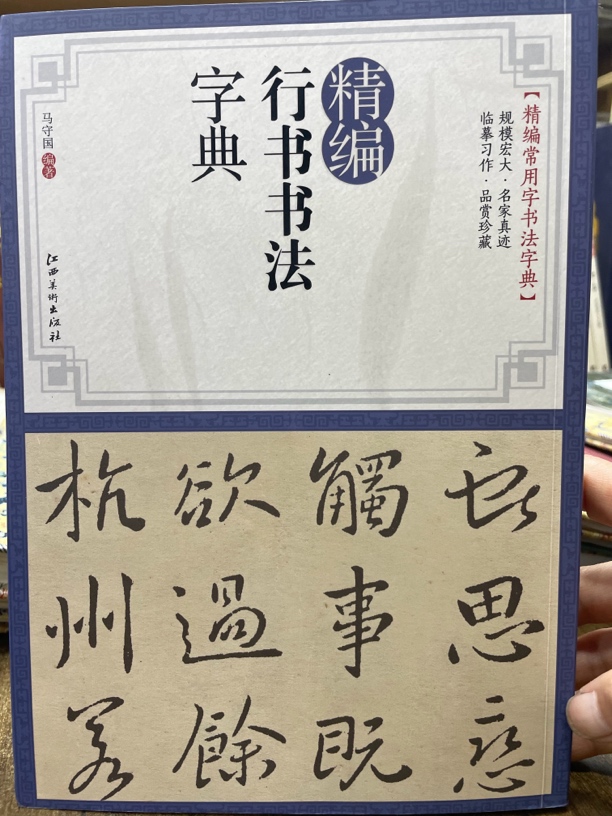 【精编常用字书法字典】
规模宏大·名家真迹
临摹习作·品赏珍藏
精编
行书书法
字典
马守国 编著
江西美術出版社
思恋
觸事既
欲過餘
杭州若